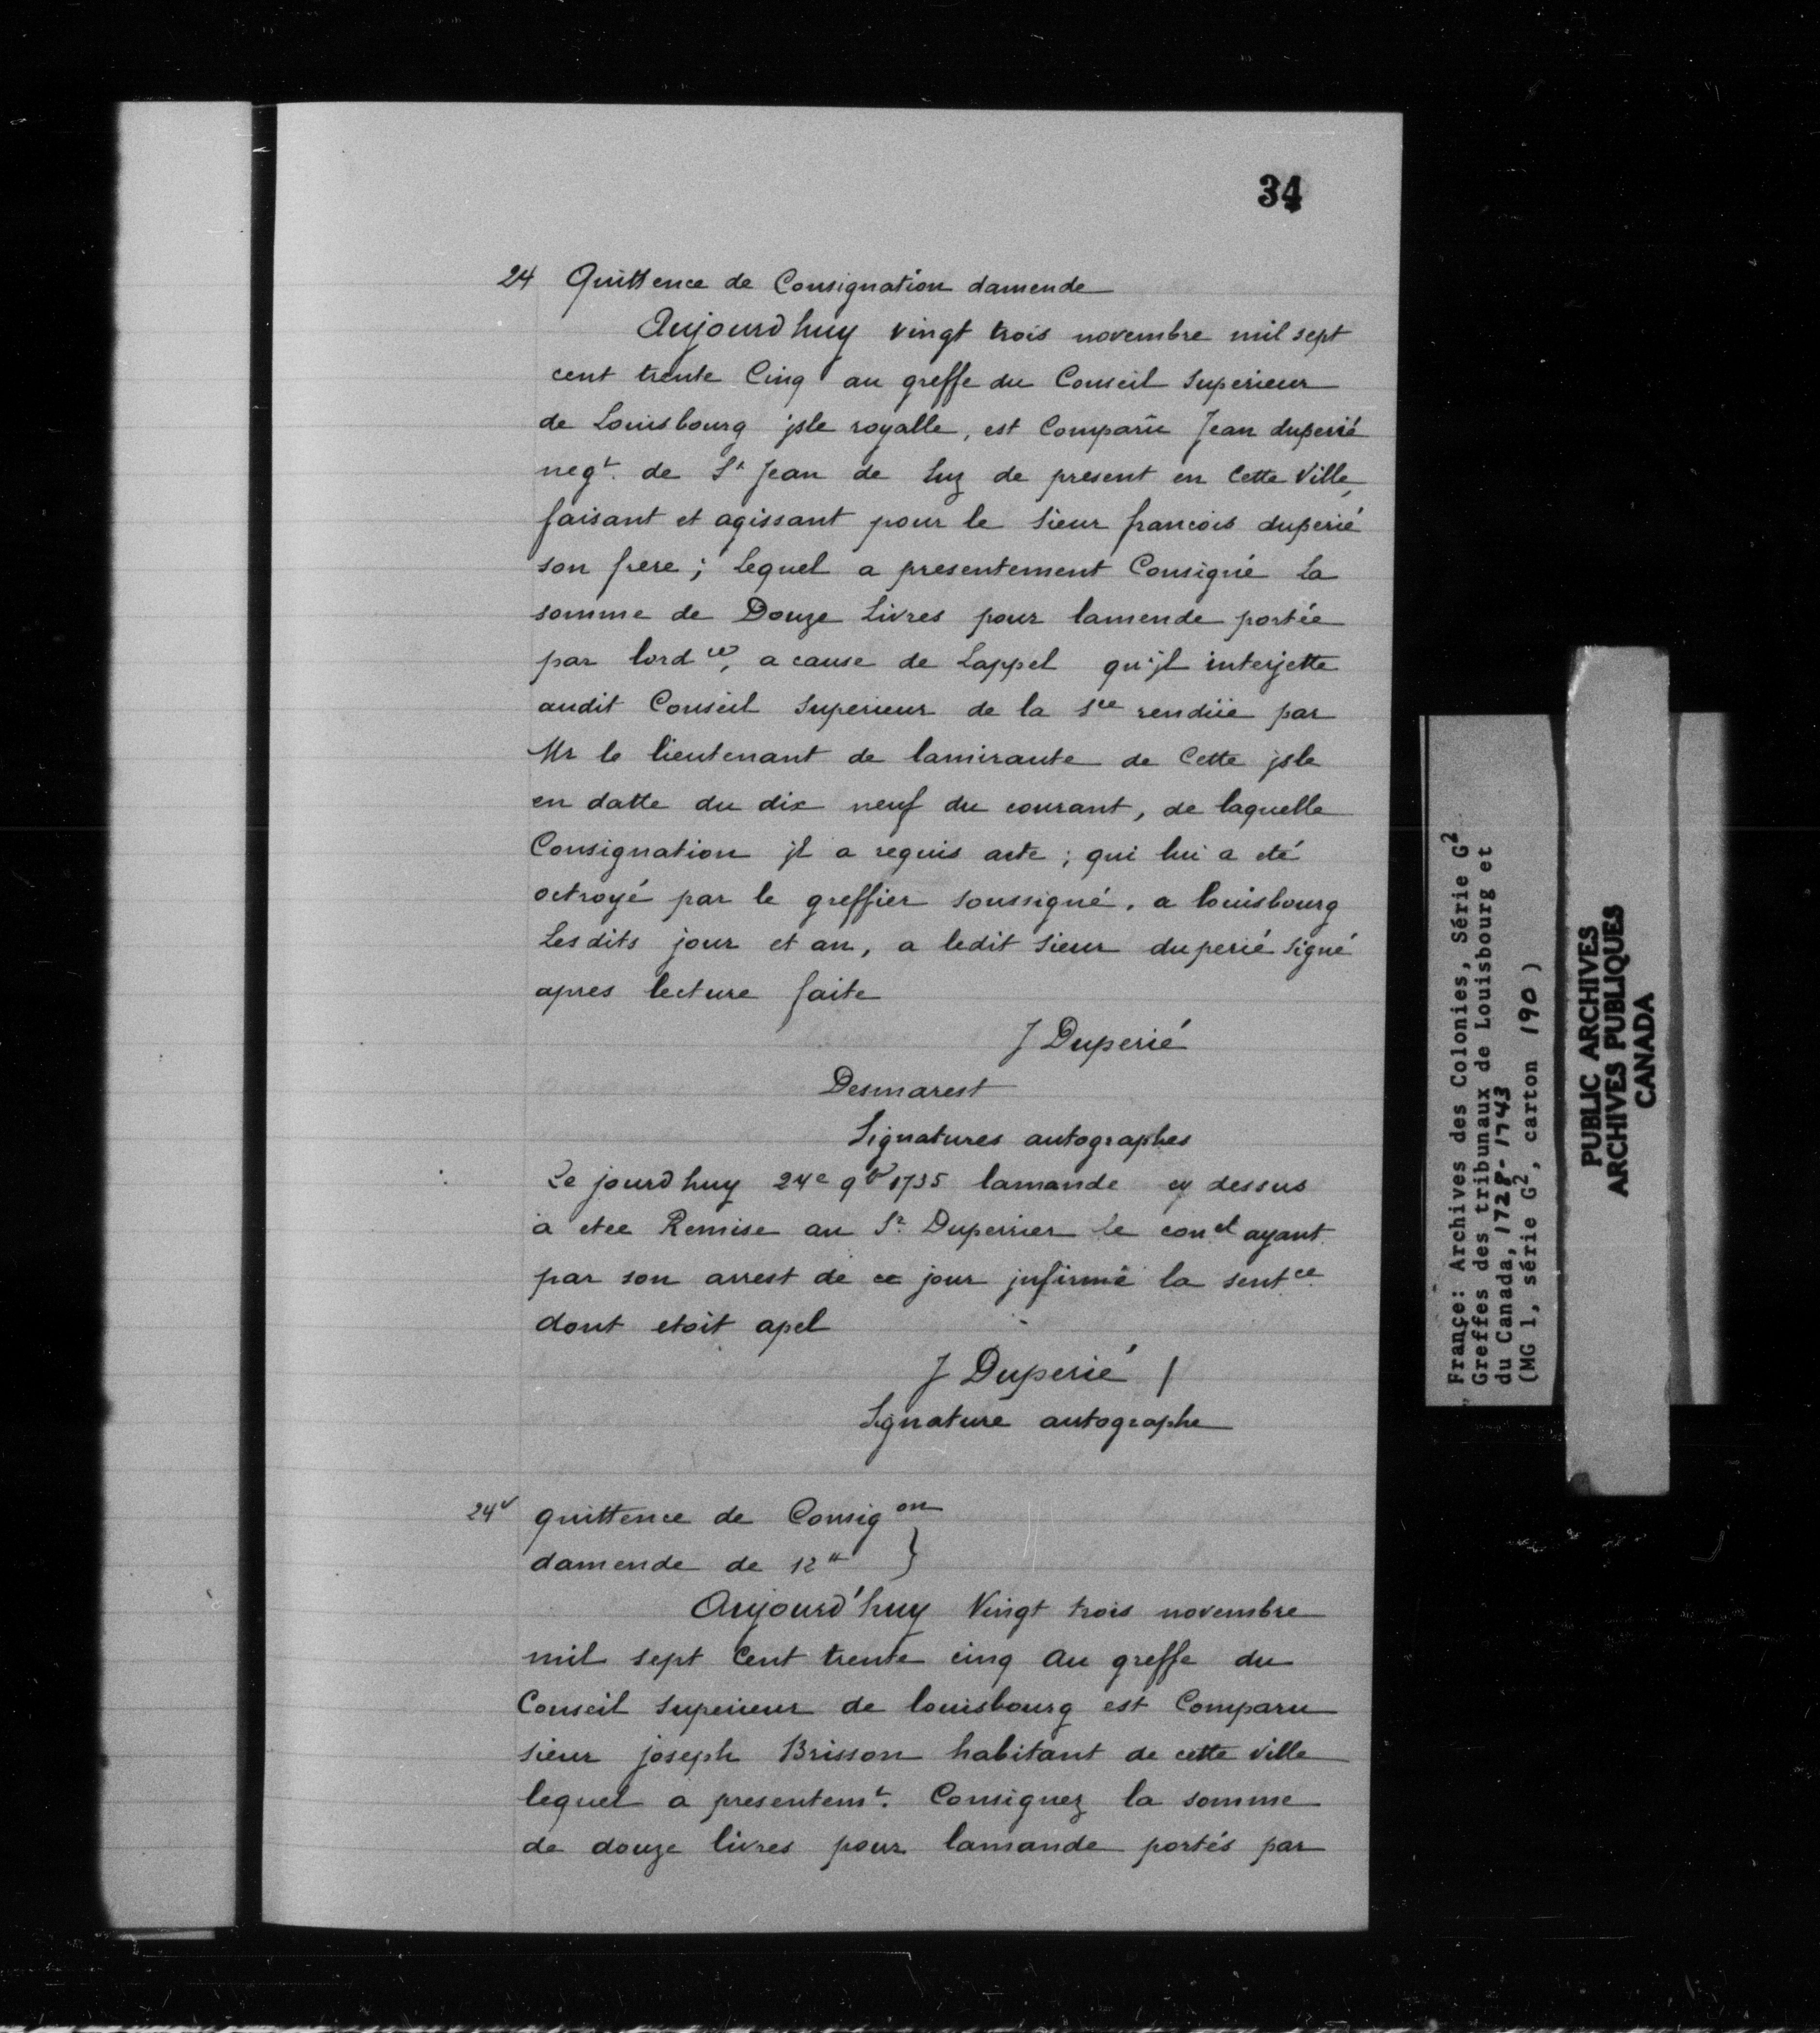 34
24 Quittence de Consignation damende
Aujourdhuy vingt trois novembre mil sept
cent trente Cinq au greffe du Conseil Superieur
de Louisbourg jsle royalle, est Comparû Jean duperié
negt. de St Jean de Luz de present en Cette Ville,
faisant et agissant pour le Sieur francois duperié
son frere; Lequel a presentement Consigné La
somme de Douze Livres pour lamende portée
par lordce, a cause de Lappel qu'jl interjette
audit Conseil Superieur de la Sce rendüe par
Mr le lieutenant de lamiraute de Cette jsle
en datte du dix neuf du courant, de laquelle
Consignation jl a requis acte; qui lui a eté
octroyé par le greffier soussigné. a louisbourg
Lesdits jour et an, a ledit Sieur duperié Signé
apres lecture faite
J Duperié
Desmarest
Signatures autographes
Ce jourdhuy 24e 9b 1735 lamande cy dessus
a etee Remise au Sr. Duperrier le conel ayant
par son arrest de ce jour jnfirmé la sentce
dont etoit apel
J Duperié /
Signature autographe
24v quittence de Consigon
damende de 12# }
Aujourd'huy Vingt trois novembre
mil sept Cent trente cinq au greffe du
Conseil Superieur de louisbourg est Comparu
sieur joseph Brisson habitant de cette ville
lequel a presentemt. Consignez la somme
de douze livres pour lamande portés par
France: Archives des Colonies, Série G2
Greffes des tribunaux de Louisbourg et
du Canada, 1728-1743
(MG 1, série G2, carton 190)
PUBLIC ARCHIVES
ARCHIVES PUBLIQUES
CANADA